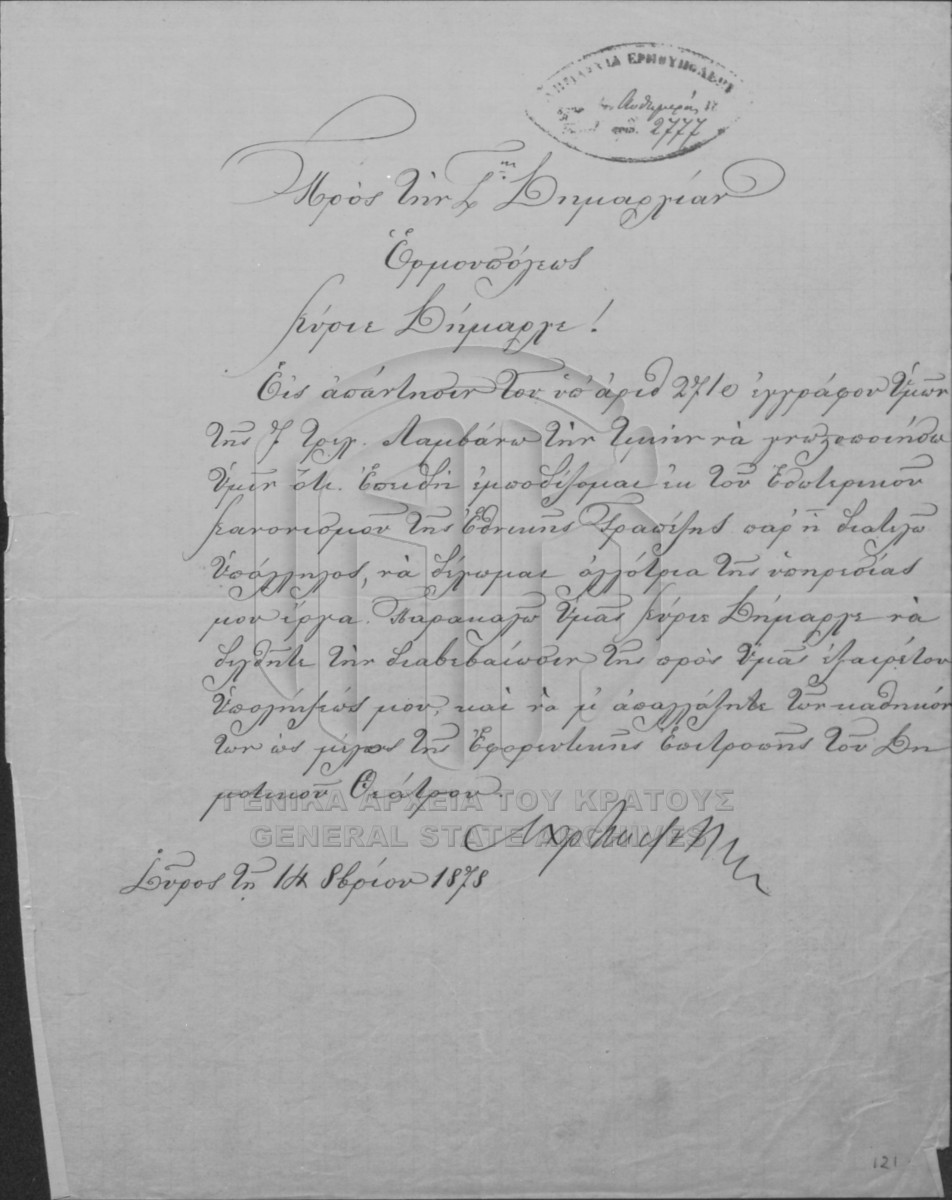 ΔΗΜΑΡΧΙΑ ΕΡΜΟΥΠΟΛΕΩΣ
Αὐθημερόν
2777
Πρὸς τὴν Σ.ην Δημαρχίαν
Ἑρμουπόλεως
Κύριε Δήμαρχε!
Εἰς ἀπάντησιν τοῦ ὑπ' ἀριθ 2710 ἐγγράφου Ὑμῶν
τῆς 7 τρεχ. Λαμβάνω τὴν τιμὴν νὰ γνωστοποιήσω
Ὑμῖν ὅτι. Ἐπειδὴ ἐμποδίζομαι ἐκ τοῦ Ἐσωτερικοῦ
Κανονισμοῦ τῆς Ἐθνικῆς Τραπέζης παρ' ἧ διατελῶ
Ὑπάλληλος, νὰ δέχωμαι ἀλλότρια τῆς ὑπηρεσίας
μου ἔργα. Παρακαλῶ Ὑμᾶς Κύριε Δήμαρχε νὰ
δεχθῆτε τὴν διαβεβαίωσιν τῆς πρὸς Ὑμᾶς ἐξαιρέτου
Ὑπολήψεώς μου, καὶ νὰ μ' ἀπαλλάξητε τῶν καθηκόν
των ὡς μέλος τῆς Ἐφορευτικῆς Ἐπιτροπῆς τοῦ Δη
μοτικοῦ Θεάτρου.
ΓΕΝΙΚΑ ΑΡΧΕΙΑ ΤΟΥ ΚΡΑΤΟΥΣ
GENERAL STATE ARCHIVES
Σύρος τῇ 14 8βρίου 1878
121